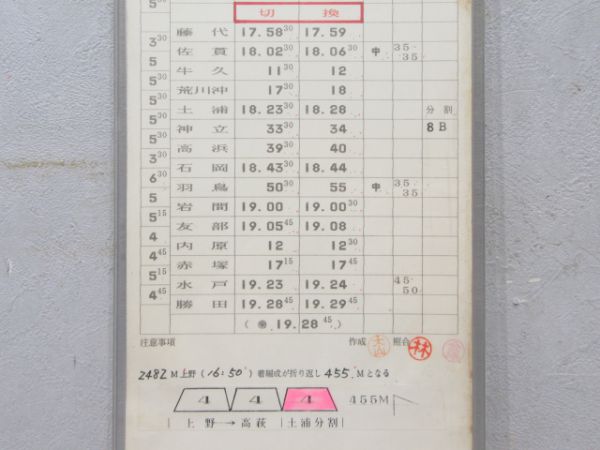 5 30
切 換
藤 代 17.58 30 17.59
3 30
佐 貫 18.02 30 18.06 30 中 35 35
5
牛 久 11 30 12
5 30
荒川沖 17 30 18
5 30
土 浦 18.23 30 18.28 分 割
5 30
神 立 33 30 34 8 B
5 30
高 浜 39 30 40
3 30
石 岡 18.43 30 18.44
6 30
羽 鳥 50 30 55 中 35 35
5
岩 間 19.00 19.00 30
5 15
友 部 19.05 45 19.08
4
内 原 12 12 30
4 45
赤 塚 17 17 45
5 15
水 戸 19.23 19.24 45 50
4 45
勝 田 19.28 45 19.29 45
( 19.28 45 )
注意事項 作成 照合 林
2482 M上野 (16:50) 着編成が折り返し 455 Mとなる
4 4 4 455M
上 野 → 高 萩 土浦分割